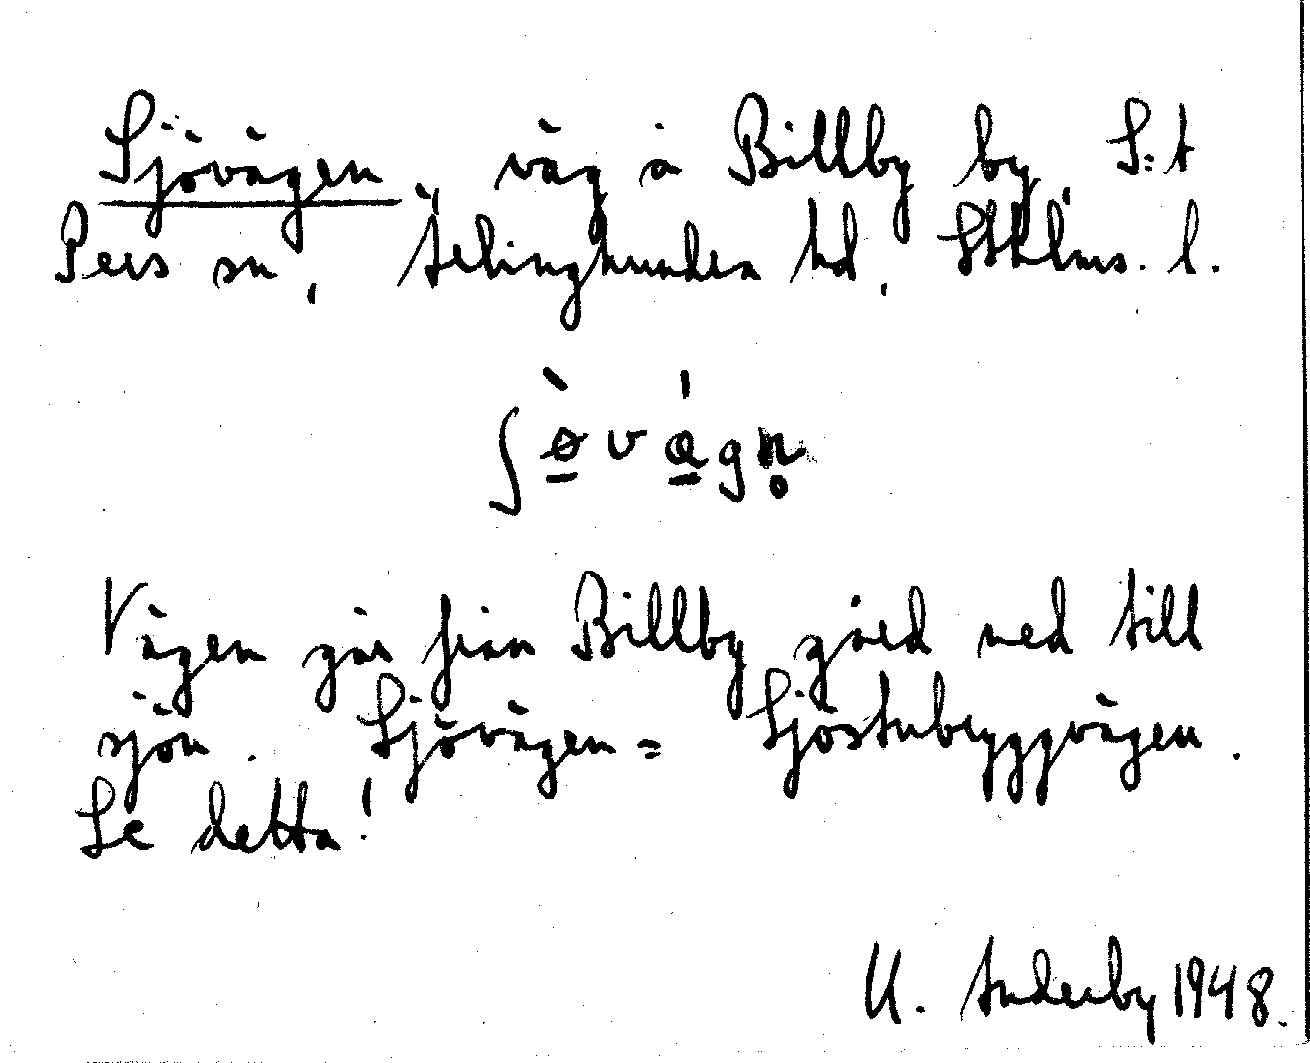 Sjövägen, väg å Billby by, S:t
Pers sn, Seminghundra hd, Sthlms. l.
ʃø̀vág n̥
Vägen går från Billby gård ned till
sjön. Sjövägen = Sjöstubryggvägen.
Se detta!
U. Anderby 1948.